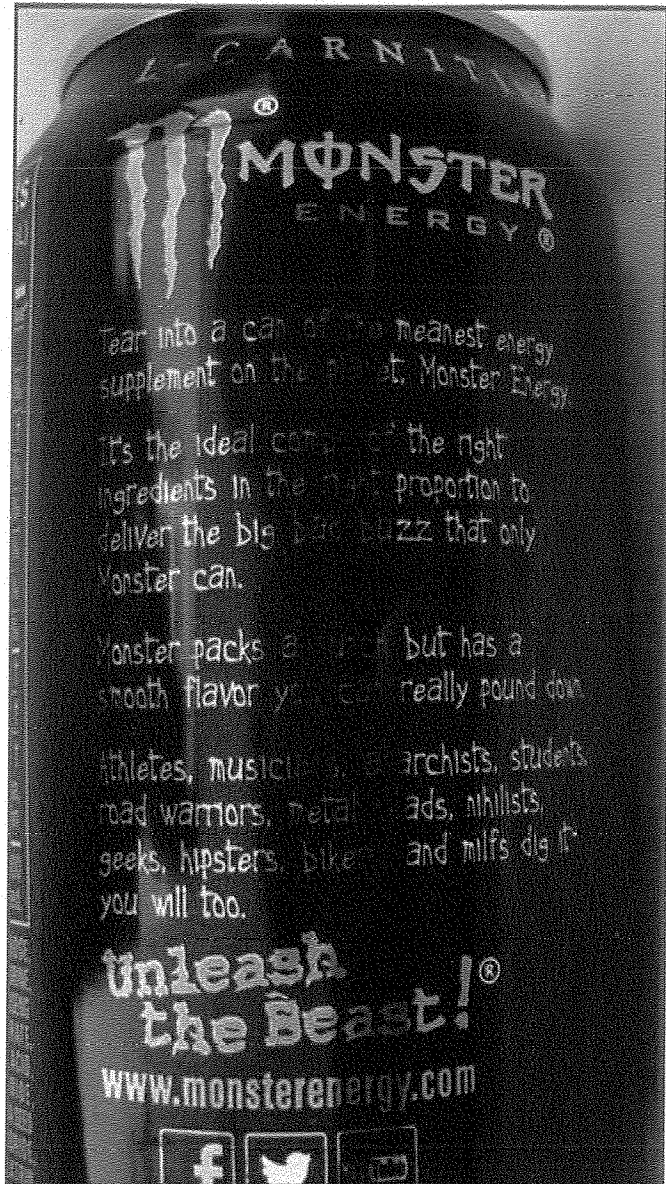 L-CARNITI
®
MONSTER
ENERGY®
Tear into a can of the meanest energy
supplement on the planet, Monster Energy.
It's the ideal combo of the right
ingredients in the right proportion to
deliver the big bad buzz that only
Monster can.
Monster packs a but has a
smooth flavor you can really pound down.
Athletes, musicians, anarchists, students,
road warriors, metal heads, nihilists,
geeks, hipsters, bikers and milfs dig it-
you will too.
Unleash
the Beast!®
www.monsterenergy.com